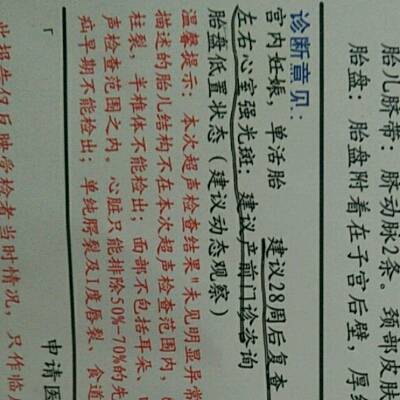 胎儿脐带：脉动脉2条。颈部皮肤
胎盘：胎盘附着在子宫后壁，厚
诊断意见：
宫内妊娠，单活胎 建议28周后复查
左右心室强光斑：建议产前门诊咨询
胎盘低置状态（建议动态观察）
温馨提示：本次超声检查结果"未见明显异常
描述的胎儿结构不在本次超声检查范围内，
柱裂，半椎体不能检出；面部不包括耳朵、
声检查范围之内。心脏只能排除50%-70%的先
病早期不能检出；单纯腭裂及I度唇裂、食道
申请医
此报告仅反映受检者当时情况，只作临